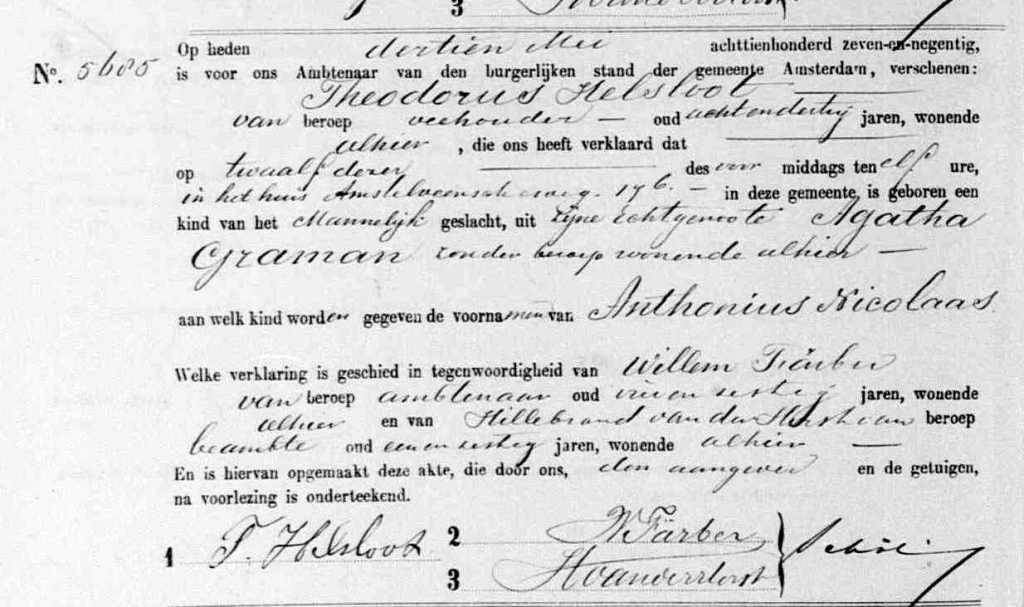 3
No. 5685
Op heden dertien Mei achttienhonderd zeven-en-negentig,
is voor ons Ambtenaar van den burgerlijken stand der gemeente Amsterdam, verschenen:
Theodorus Helsloot
van beroep veehouder — oud achtendertig jaren, wonende
alhier, die ons heeft verklaard dat
op twaalf dezer des voor middags ten elf ure,
in het huis Amstelveenscheweg 176. — in deze gemeente, is geboren een
kind van het Mannelijk geslacht, uit zijne echtgenoote Agatha
Graman zonder beroep wonende alhier —
aan welk kind worden gegeven de voornamen van Anthonius Nicolaas.
Welke verklaring is geschied in tegenwoordigheid van Willem Färber
van beroep ambtenaar oud en sestig jaren, wonende
alhier en van Hillebrand van der Horst van beroep
beambte oud eenensestig jaren, wonende alhier —
En is hiervan opgemaakt deze akte, die door ons, den aangever en de getuigen,
na voorlezing is onderteekend.
1 T. Helsloot 2 W Färber
3 H van der Horst